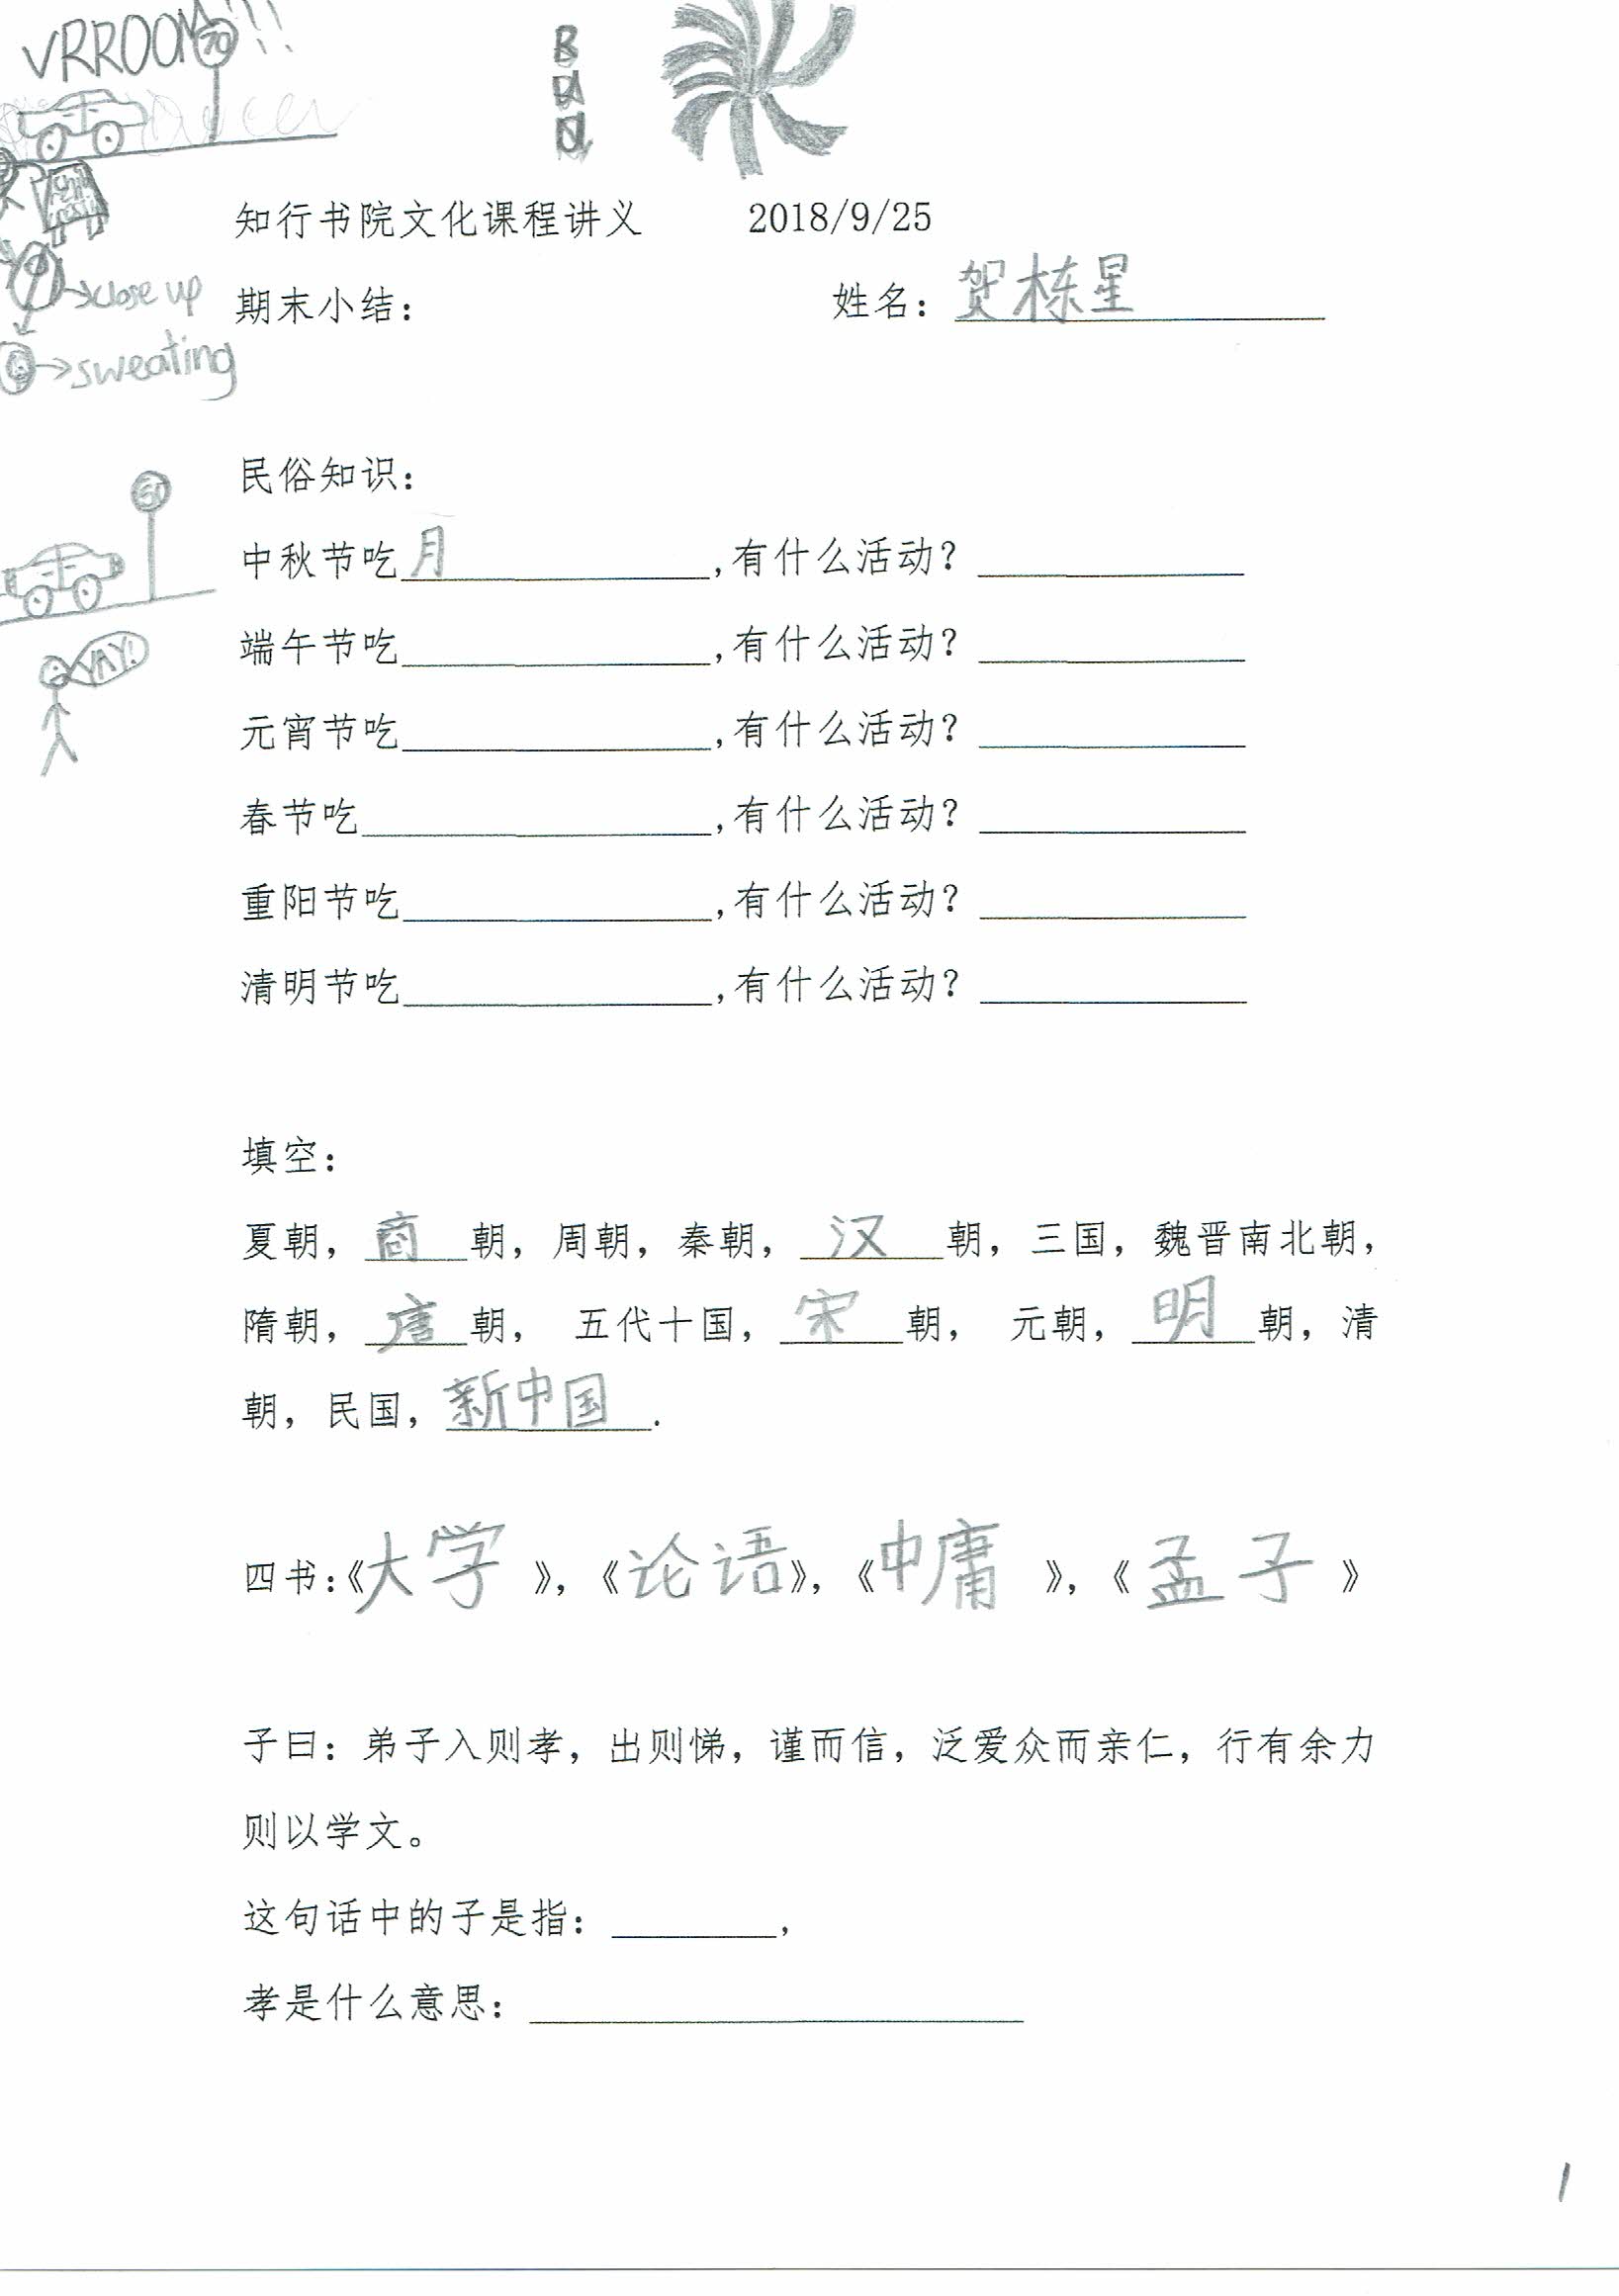 VRROOM!!!
70
知行书院文化课程讲义 2018/9/25
→close up
期末小结： 姓名：贺栋星
→sweating
民俗知识：
中秋节吃月__________,有什么活动？__________
端午节吃__________,有什么活动？__________
YAY!
元宵节吃__________,有什么活动？__________
春节吃__________,有什么活动？__________
重阳节吃__________,有什么活动？__________
清明节吃__________,有什么活动？__________
填空：
夏朝，商朝，周朝，秦朝，汉朝，三国，魏晋南北朝，
隋朝，唐朝， 五代十国，宋朝， 元朝，明朝，清
朝，民国，新中国.
四书：《大学》，《论语》，《中庸》，《孟子》
子曰：弟子入则孝，出则悌，谨而信，泛爱众而亲仁，行有余力
则以学文。
这句话中的子是指：________，
孝是什么意思：__________
1